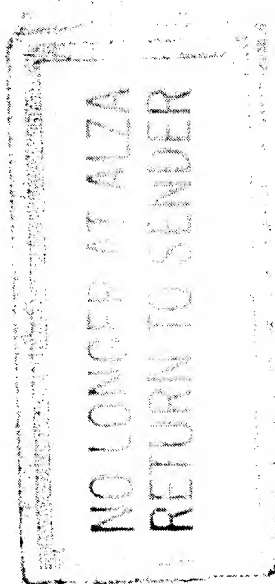 NO LONGER AT ALZA
RETURN TO SENDER